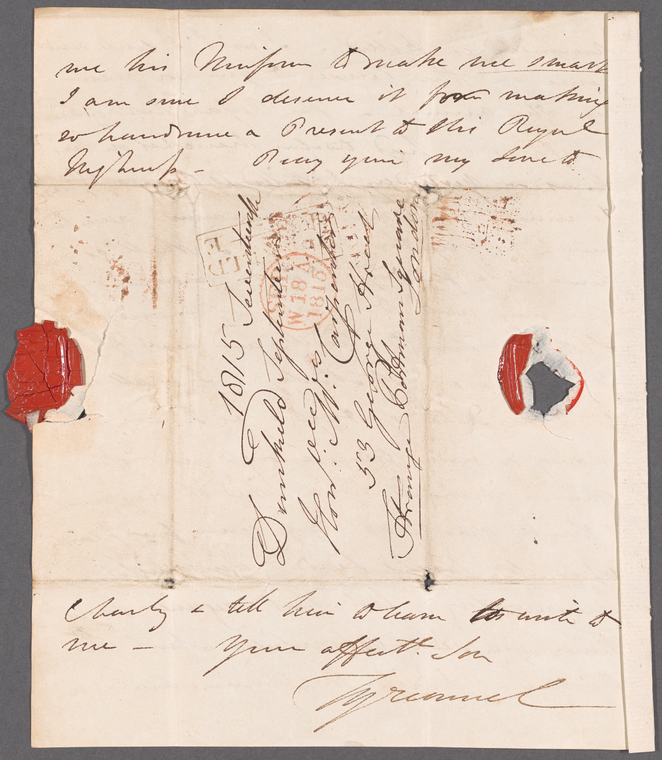 me his Uniform to make me smart
I am sure I deserve it for making
so handsome a Present to His Royal
Highness – Pray give my Love to
1815 Seventeenth
Dunkeld September
Honble Mrs Carpenter
53 George Street
Portman Square
London
W 18 A
1815
Charly & tell him to learn to write to
me – Your affectte Son
Tyrconnel